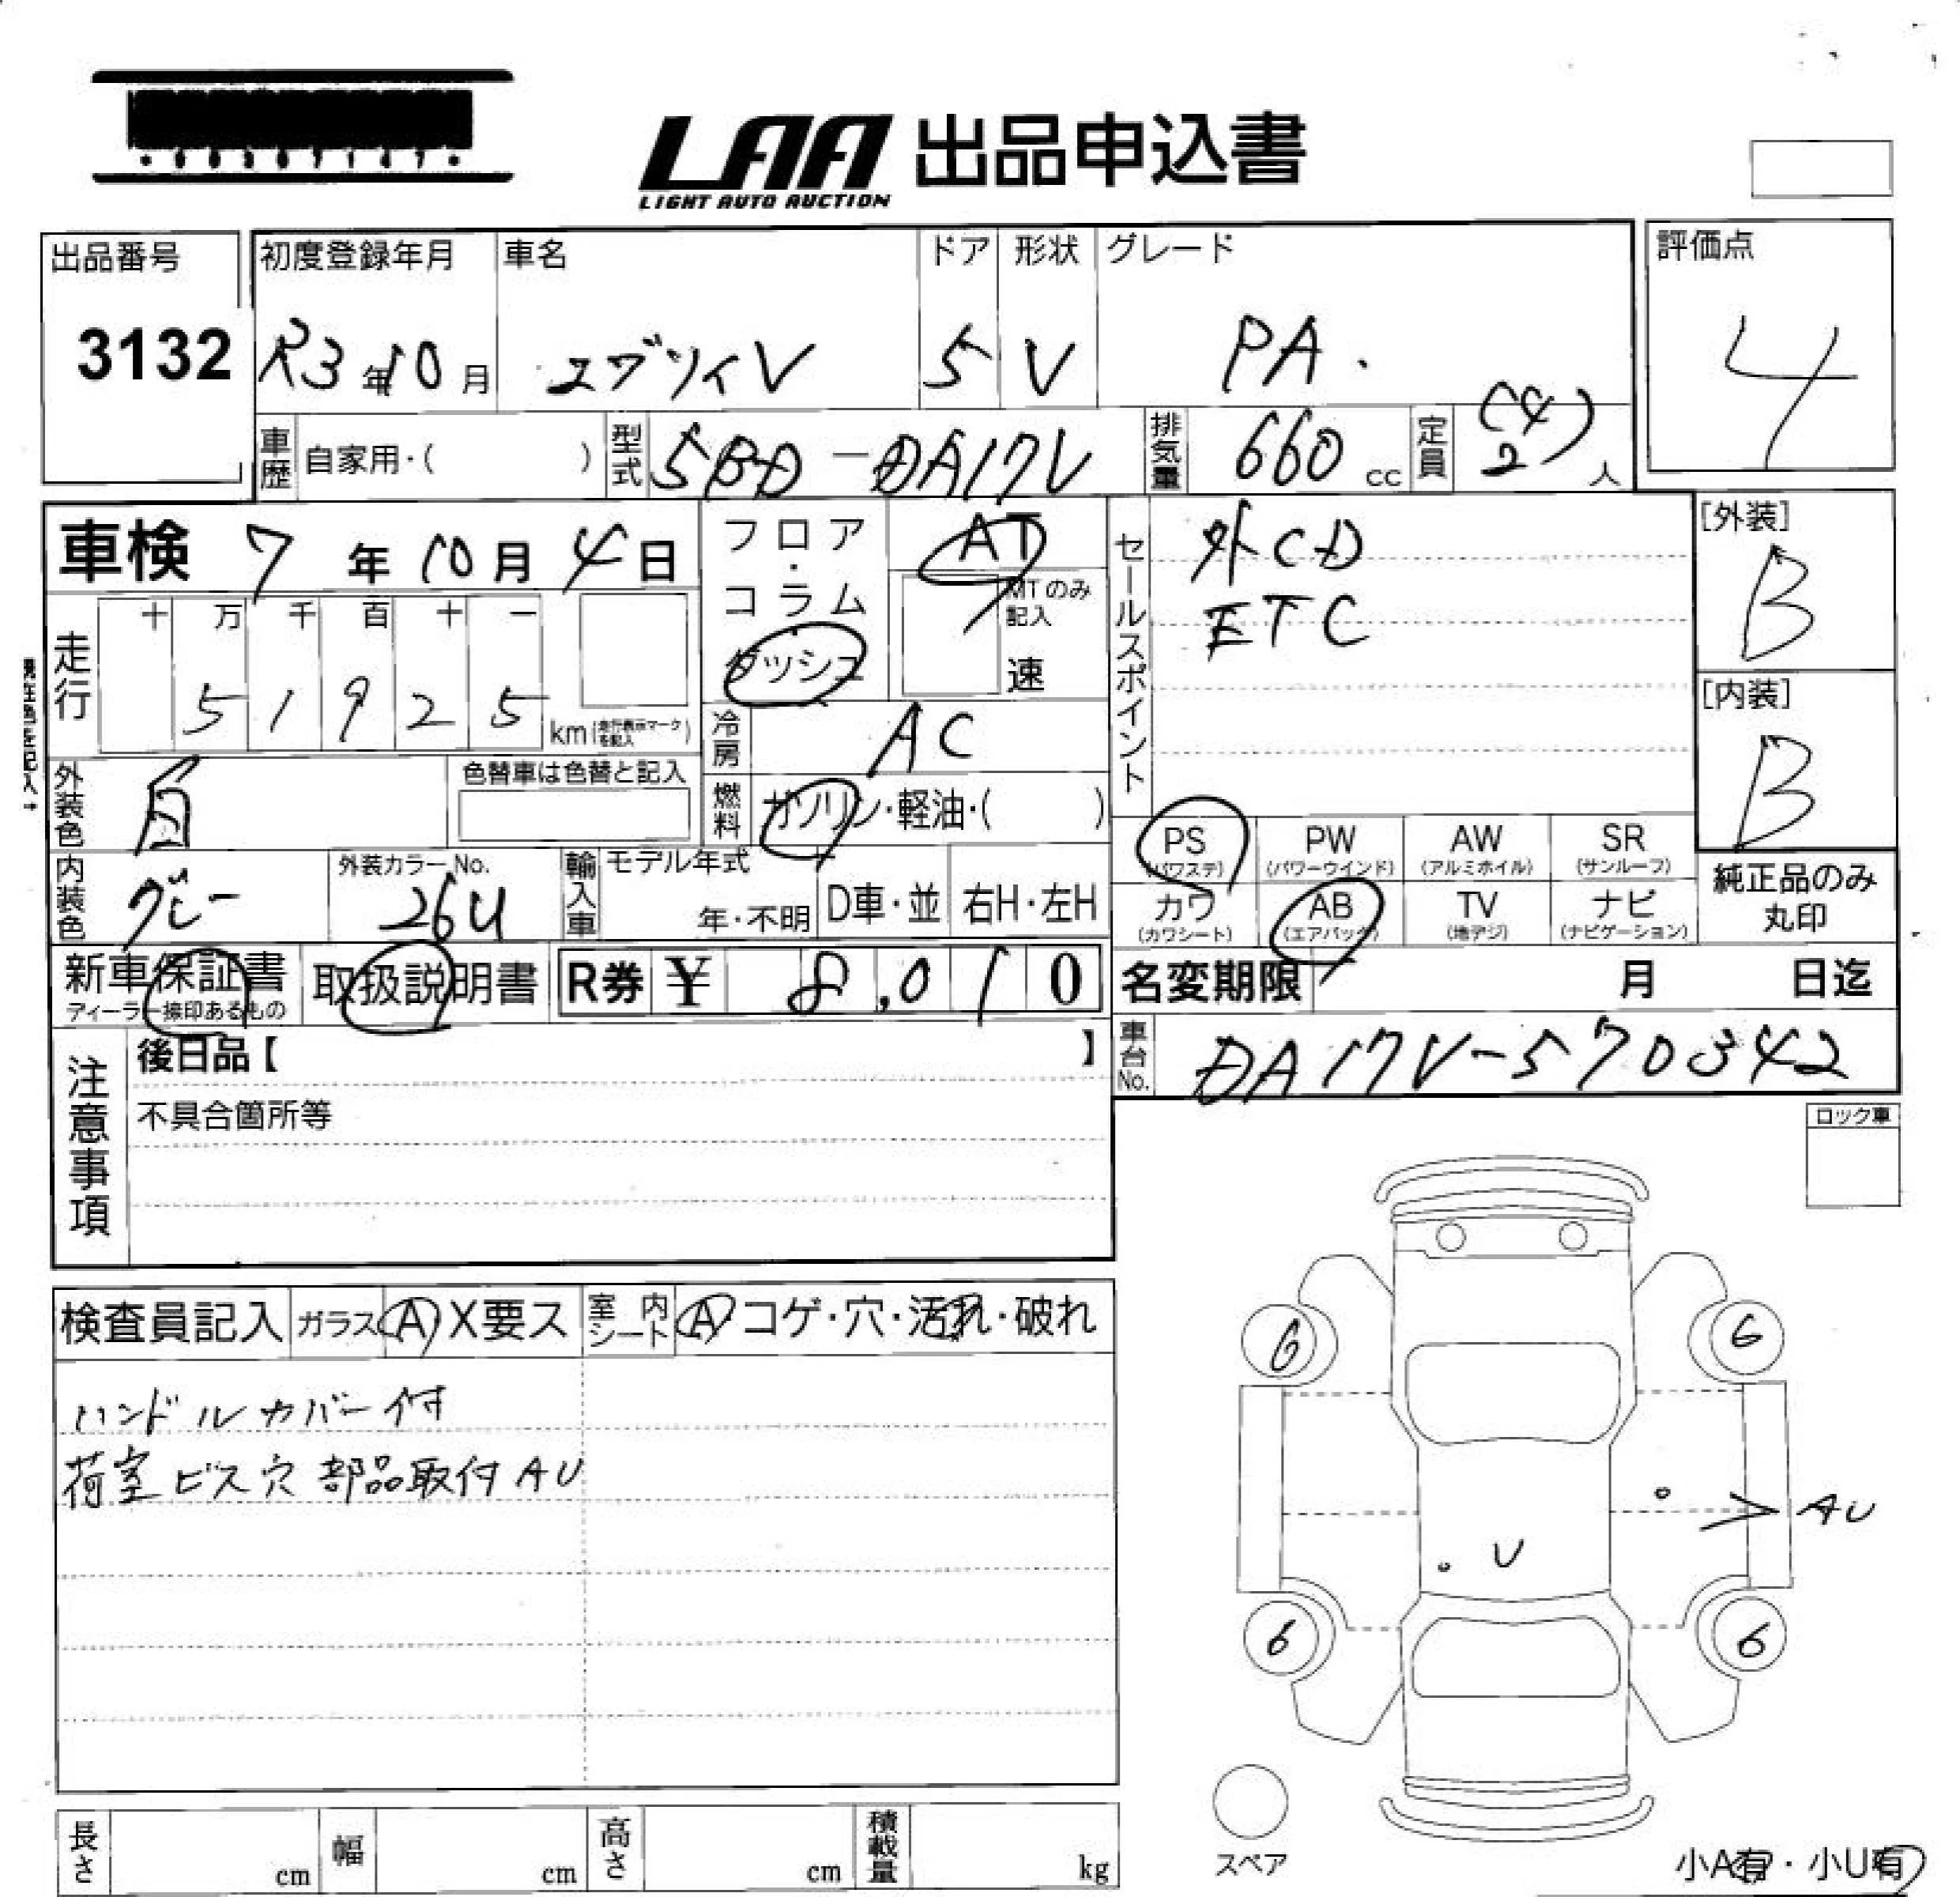 LAA 出品申込書
LIGHT AUTO AUCTION
出品番号 初度登録年月 車名 ドア 形状 グレード 評価点
3132 R3年10月 エブリイV 5 V PA. 4
車歴 自家用・( ) 型式 5BD-DA17V 排気量 660cc 定員 2(4)人
車検 7年10月4日 フロア・コラム ダッシュ AT セールスポイント 外CD [外装]
MTのみ記入 速 ETC B
走行 十 万 千 百 十 一
5 1 9 2 5 km(走行表示マークを記入) [内装]
冷房 AC B
外装色 白 色替車は色替と記入 燃料 ガソリン・軽油・( )
PS PW AW SR
(パワステ) (パワーウインド) (アルミホイル) (サンルーフ)
内装色 グレー 外装カラーNo. 26U 輸入車 モデル年式 年・不明 D車・並 右H・左H
カワ AB TV ナビ 純正品のみ
(カワシート) (エアバック) (地デジ) (ナビゲーション) 丸印
新車保証書 取扱説明書 R券 ¥ 8,010 名変期限 月 日迄
ディーラー捺印あるもの
注意事項 後日品【 】 車台No. DA17V-570342
不具合箇所等
ロック車
検査員記入 ガラス A X要ス 室内シート A コゲ・穴・汚れ・破れ
6 6
ハンドルカバー付
荷室ビス穴 部品取付AU
AU
U
6 6
スペア
長さ cm 幅 cm 高さ cm 積載量 kg
小A有・小U有